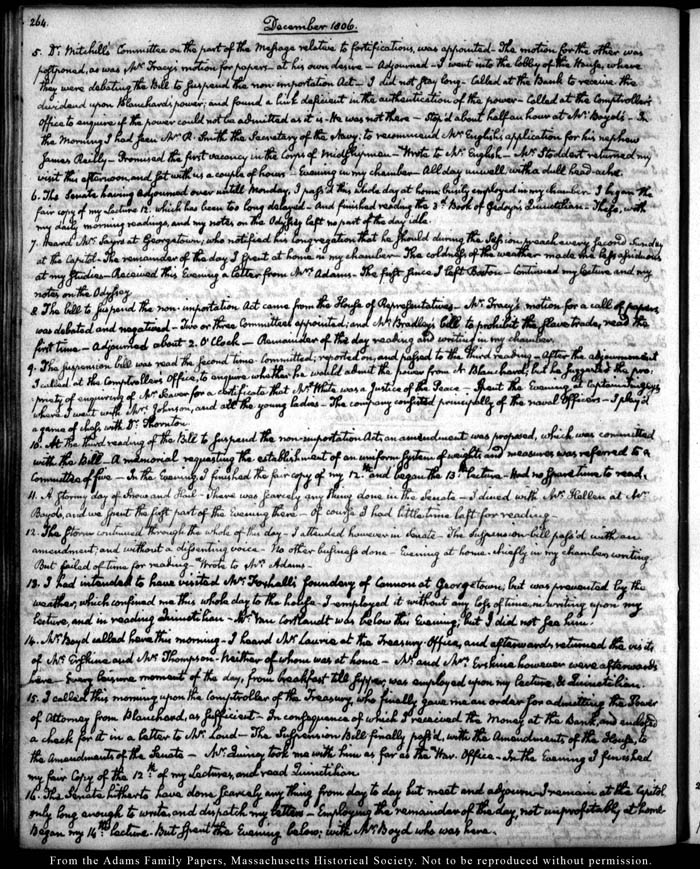 264.
December 1806.
5. Dr. Mitchell's Committee on the part of the Message relative to fortifications, was appointed - The motion for the other was
postponed, as was Mr. Tracy's motion for papers - at his own desire - Adjourned - I went into the lobby of the House, where
they were debating the Bill to suspend the non-importation Act - I did not stay long - Called at the Bank to receive the
dividend upon Blanchard's power; and found a link deficient in the authentication of the power - Called at the Comptroller's
office to enquire if the power could not be admitted as it is - He was not there - Stop'd about half an hour at Mr. Boyd's - In
the Morning I had seen Mr. R. Smith the Secretary of the Navy; to recommend Mr. English's application for his nephew
James Reilly - Promised the first vacancy in the Corps of Midshipmen - Wrote to Mr. English - Mr. Stoddert returned my
visit this afternoon, and sat with us a couple of hours - Evening in my chamber - All day unwell with a dull head-ache.
6. The Senate having adjourned over untill Monday, I pass'd this whole day at home; busily employed in my chamber. I began the
fair copy of my Lecture 12. which has been too long delayed - And finished reading the 3d. Book of Quintilian - These, with
my daily morning readings, and my notes on the Odyssey left no part of the day idle.
7. Heard Mr. Sayrs at Georgetown; who notified his congregation that he should during the Session, preach every second Sunday
at the Capitol - The remainder of the day I spent at home in my chamber - The coldness of the weather made me less assiduous
at my Studies - Received this Evening a letter from Mrs. Adams - The first since I left Boston - Continued my lecture and my
notes on the Odyssey.
8. The bill to suspend the non-importation Act came from the House of Representatives - Mr. Tracy's motion for a call of papers,
was debated and negatived - Two or three Committees appointed; and Mr. Bradley's bill to prohibit the slave trade, read the
first time - Adjourned about 2. O'Clock - Remainder of the day reading and writing in my chamber.
9. The suspension bill was read the second time - Committed; reported on, and passed to the third reading - After the adjournment
I called at the Comptroller's Office, to enquire whether he would admit the power from N. Blanchard; but he suggested the pro-
priety of enquiring of Mr. Seaver for a certificate that Mr. White was a Justice of the Peace - Spent the Evening at Captain Tingey's
where I went with Mrs. Johnson, and all the young ladies - The company consisted principally of the naval Officers - I play'd
a game of chess with Dr. Thornton.
10. At the third reading of the Bill to suspend the non-importation Act, an amendment was proposed, which was committed
with the Bill - A memorial requesting the establishment of an uniform system of weights and measures, was referred to a
Committee of five - In the Evening I finished the fair copy of my 12th. and began the 13th. lecture - Had no spare time to read.
11. A stormy day of Snow and Hail - There was scarcely any thing done in the Senate - I dined with Mr. Hellen at Mr.
Boyd's, and we spent the first part of the Evening there - Of course I had little time left for reading -
12. The Storm continued through the whole of this day - I attended however in Senate - The Suspension-bill pass'd with an
amendment, and without a dissenting voice - No other business done - Evening at home - chiefly in my chamber, writing.
But failed of time for reading - Wrote to Mrs. Adams -
13. I had intended to have visited Mr. Foxhall's foundery of Cannon at Georgetown, but was prevented by the
weather; which confined me this whole day to the house - I employed it without any loss of time, in writing upon my
lecture, and in reading Quinctilian - Mr. Van Cortlandt was below this Evening; but I did not see him.
14. Mr. Boyd called here this morning - I heard Mr. Laurie at the Treasury Office, and afterwards returned the visits
of Mr. Erskine and Mr. Thompson - Neither of whom was at home - Mr. and Mrs. Erskine however were afterwards
here - Every leisure moment of the day, from breakfast till supper, was employed upon my lecture, & Quinctilian.
15. I called this morning upon the Comptroller of the Treasury, who finally gave me an order for admitting the Power
of Attorney from Blanchard, as sufficient - In consequence of which I received the Money at the Bank, and enclosed
a check for it in a letter to Mr. Loud - The Suspension Bill finally pass'd, with the Amendments of the House, to
the Amendments of the Senate - Mr. Quincy took me with him as far as the War-Office - In the Evening I finished
my fair Copy of the 12th. of my Lectures, and read Quinctilian.
16. The Senate hitherto have done scarcely any thing from day to day but meet and adjourn. I remain at the Capitol
only long enough to write, and dispatch my letters - Employing the remainder of the day, not unprofitably, at home
Began my 14th. lecture - But spent the Evening below; with Mr. Boyd who was here.
From the Adams Family Papers, Massachusetts Historical Society. Not to be reproduced without permission.